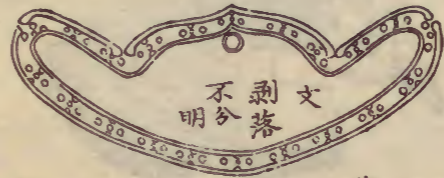 文
剥落
不分
明